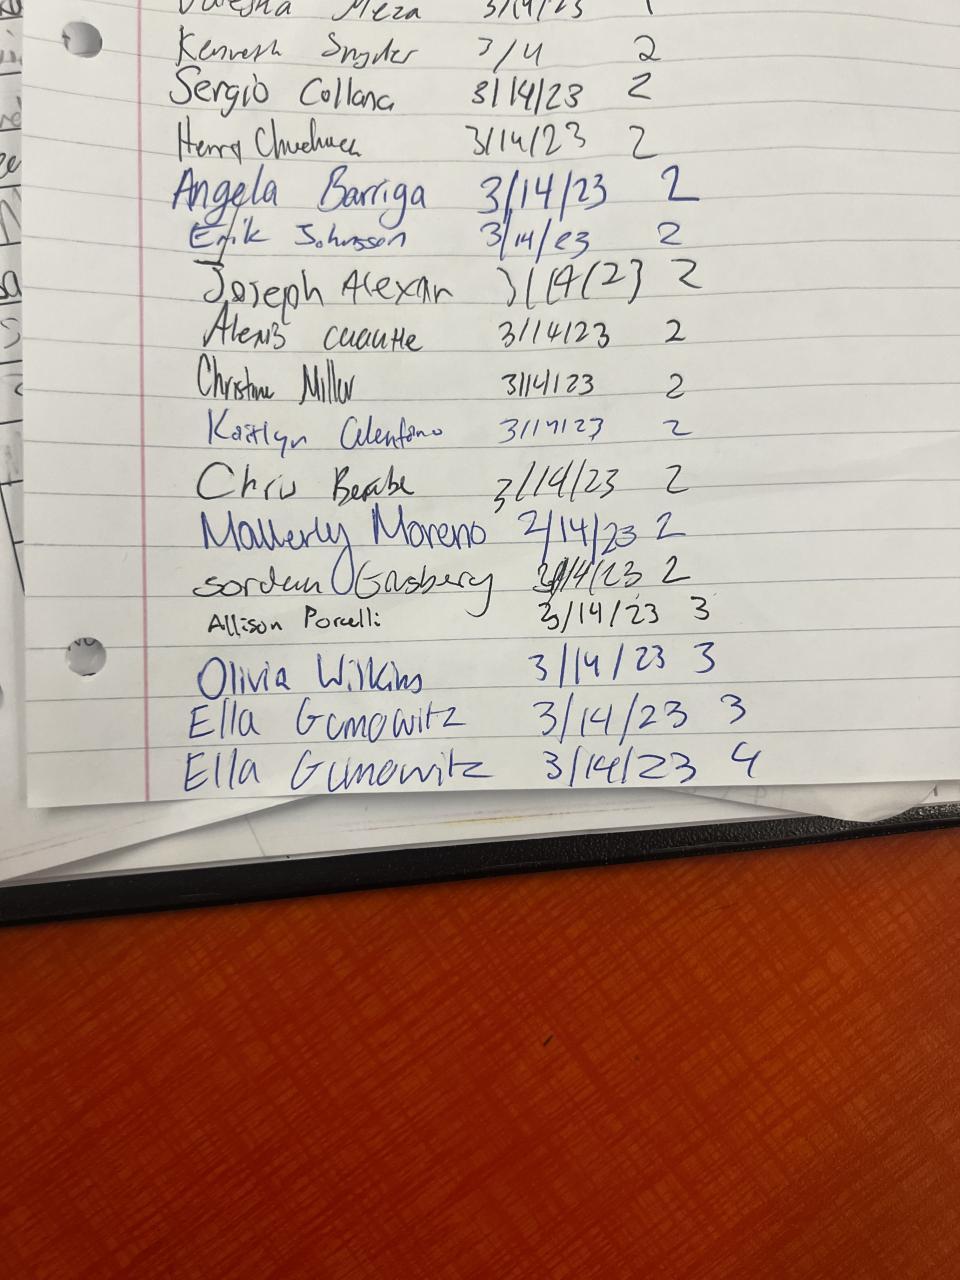 Meza 3/14/23 1
Kenneth Snyder 3/4 2
Sergio Collana 3/14/23 2
Henry 3/14/23 2
Angela Barriga 3/14/23 2
Erik Johnsson 3/14/23 2
Joseph Alexan 3/14/23 2
Alexis cuautle 3/14/23 2
Christine Miller 3/14/23 2
Kaitlyn Celentano 3/14/23 2
Chris 3/14/23 2
Mallerly Moreno 2/14/23 2
Jordan Gasbery 3/14/23 2
Allison Porcelli 3/14/23 3
Olivia Wilkins 3/14/23 3
Ella Gumowitz 3/14/23 3
Ella Gumowitz 3/14/23 4